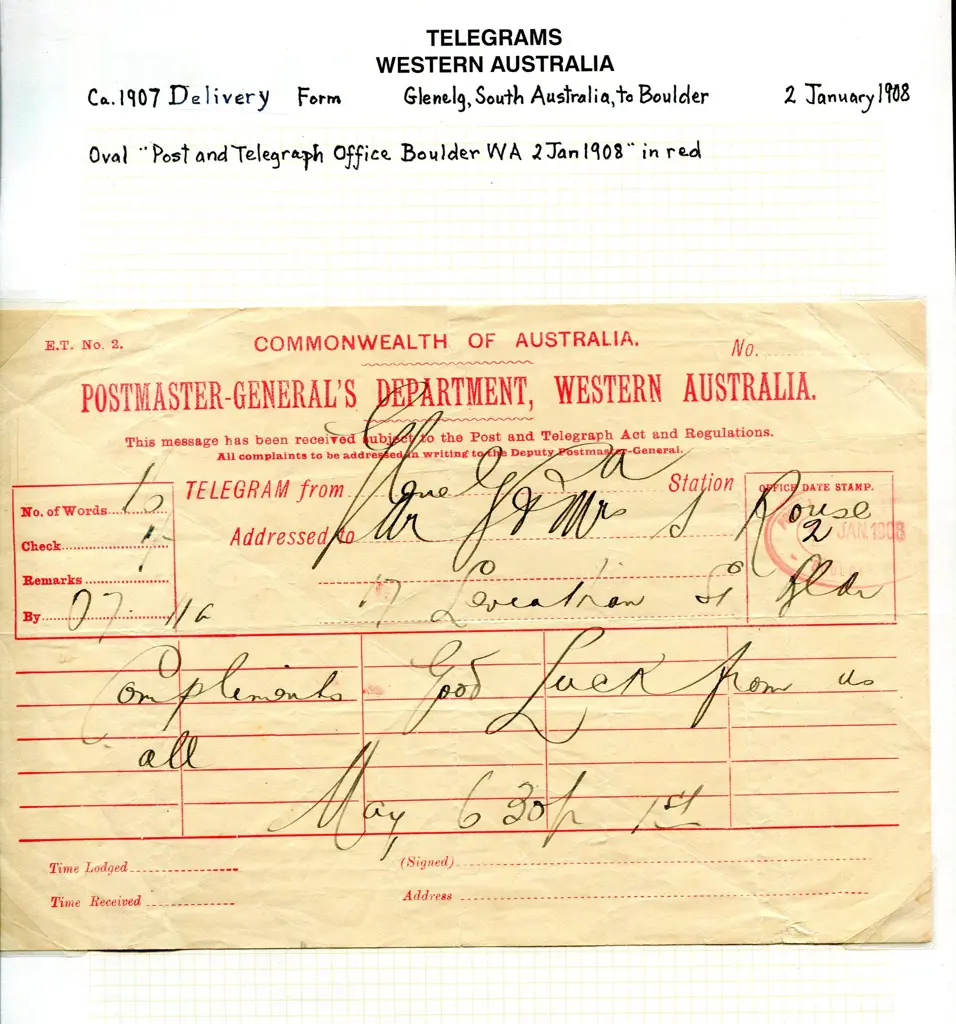 TELEGRAMS
WESTERN AUSTRALIA
Ca. 1907 Delivery Form Glenelg, South Australia, to Boulder 2 January 1908
Oval "Post and Telegraph Office Boulder WA 2 Jan 1908" in red
E.T. No. 2.
COMMONWEALTH OF AUSTRALIA.
No.
POSTMASTER-GENERAL'S DEPARTMENT, WESTERN AUSTRALIA.
This message has been received subject to the Post and Telegraph Act and Regulations.
All complaints to be addressed in writing to the Deputy Postmaster-General.
TELEGRAM from Station
OFFICE DATE STAMP.
No. of Words
Addressed to Mr & Mrs J Rouse
2 JAN. 1908
Check
Remarks
17 Leviathian St Bldr
By
Compliments Good Luck from us
all
May, 6 30p 1st
Time Lodged
(Signed)
Time Received
Address